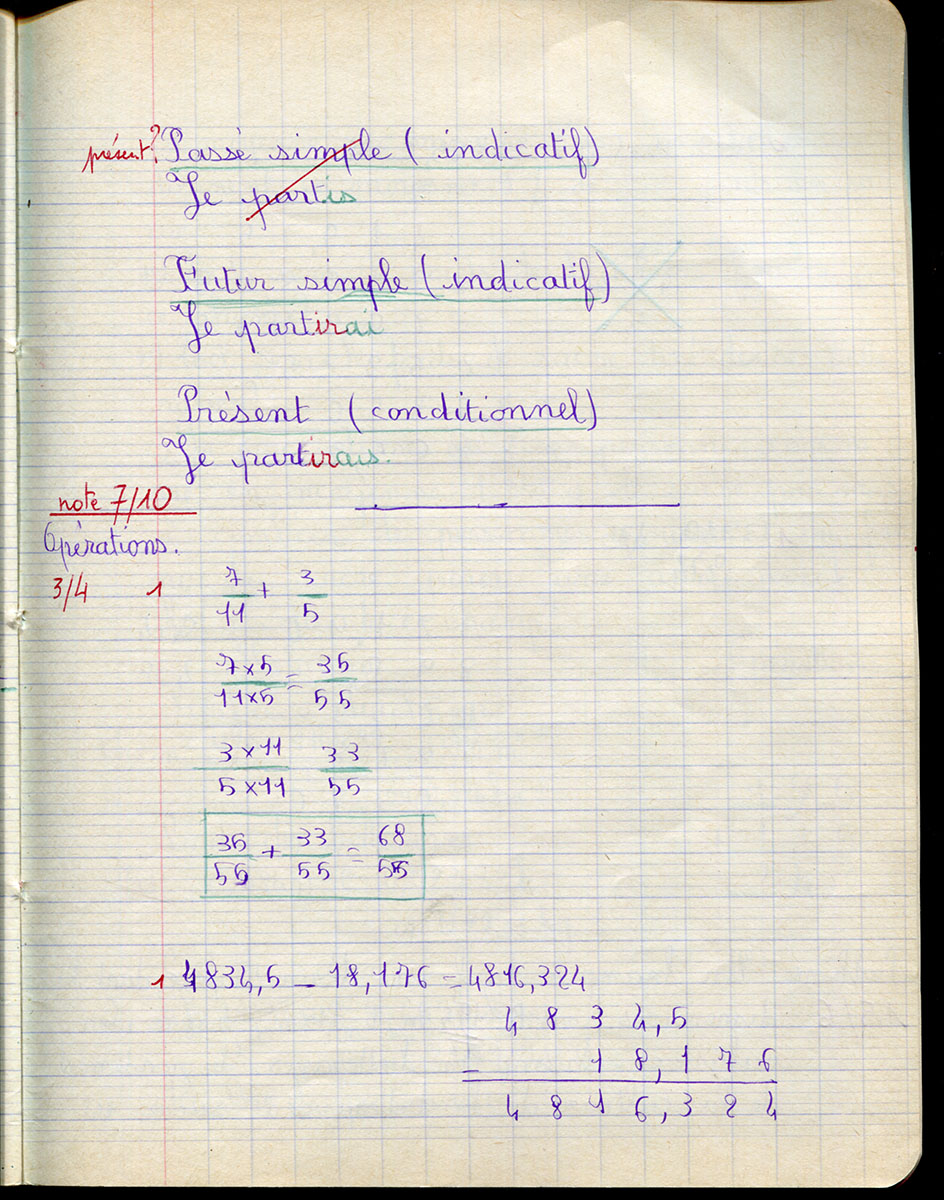 présent? Passé simple (indicatif)
Je partis
Futur simple (indicatif)
Je partirai
Présent (conditionnel)
Je partirais.
note 7/10
Opérations.
3/4 1 7/11 + 3/5
7×5/11×5 = 35/55
3×11/5×11 33/55
35/55 + 33/55 = 68/55
1 4834,5 - 18,176 = 4816,324
4 8 3 4,5
- 1 8,1 7 6
4 8 1 6,3 2 4